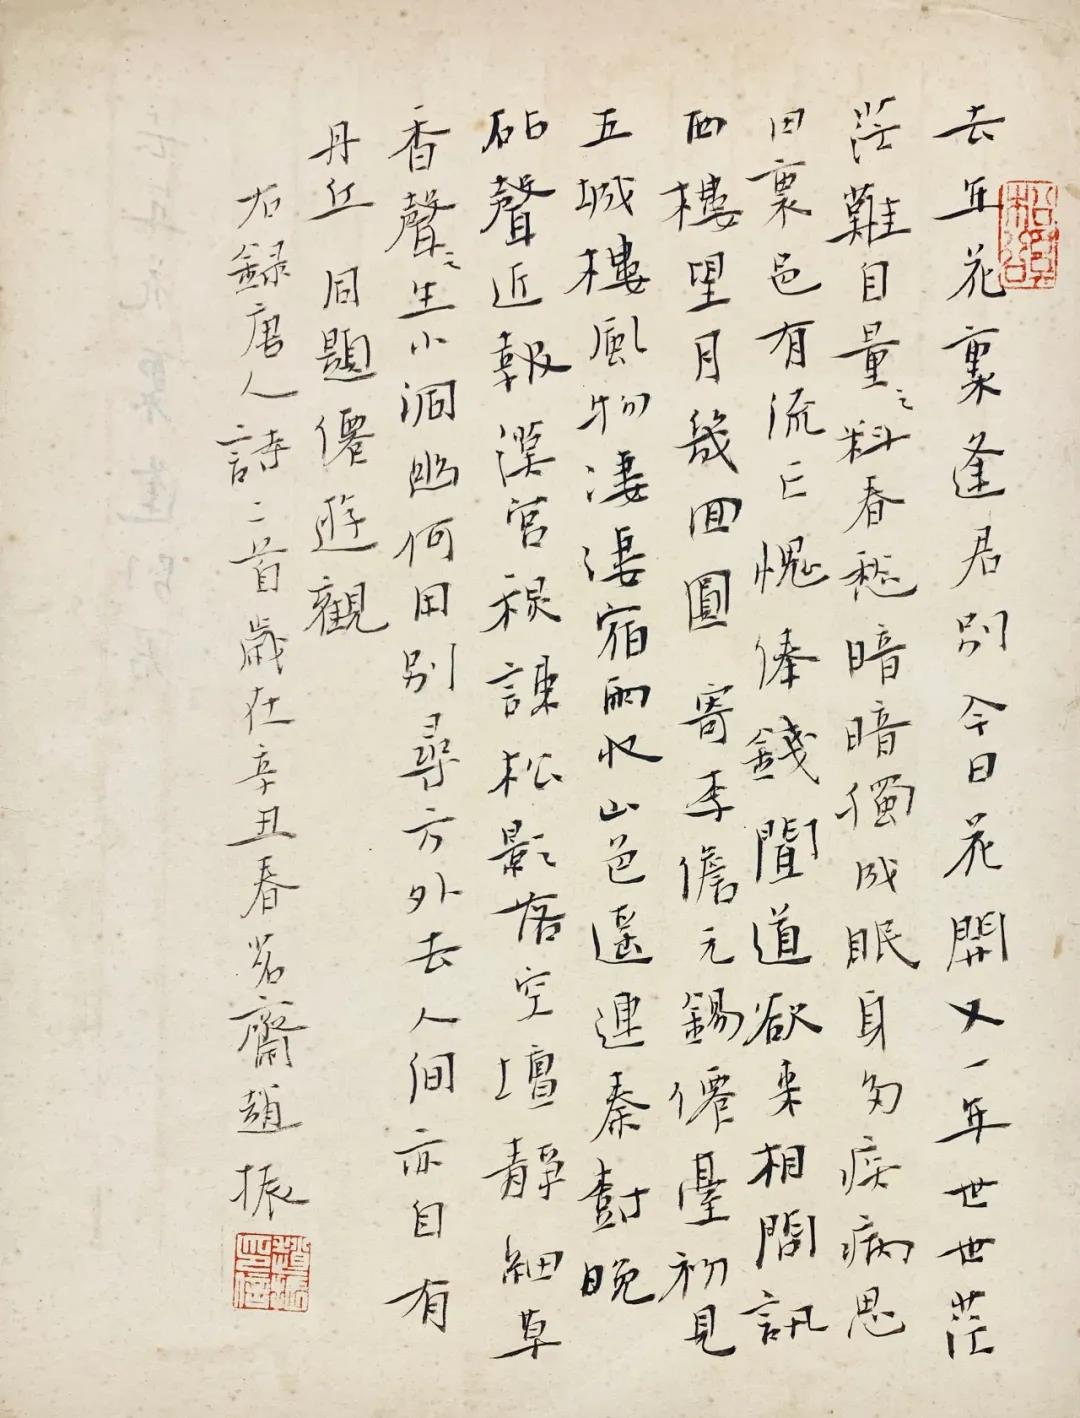 去年花裏逢君別今日花開又一年世世茫
茫難自量料春愁暗暗獨成眠身多疾病思
田裏邑有流亡愧俸錢聞道欲來相問訊
西樓望月幾回圓 寄李儋元錫 僊臺初見
五城樓風物淒淒宿雨收山色遙連秦樹晚
砧聲近報漢宮秋疎松影落空壇靜細草
香聲生小洞幽何用別尋方外去人間亦自有
丹丘 同題僊遊觀
右錄唐人詩二首歲在辛丑春茗齋趙振
趙振印信